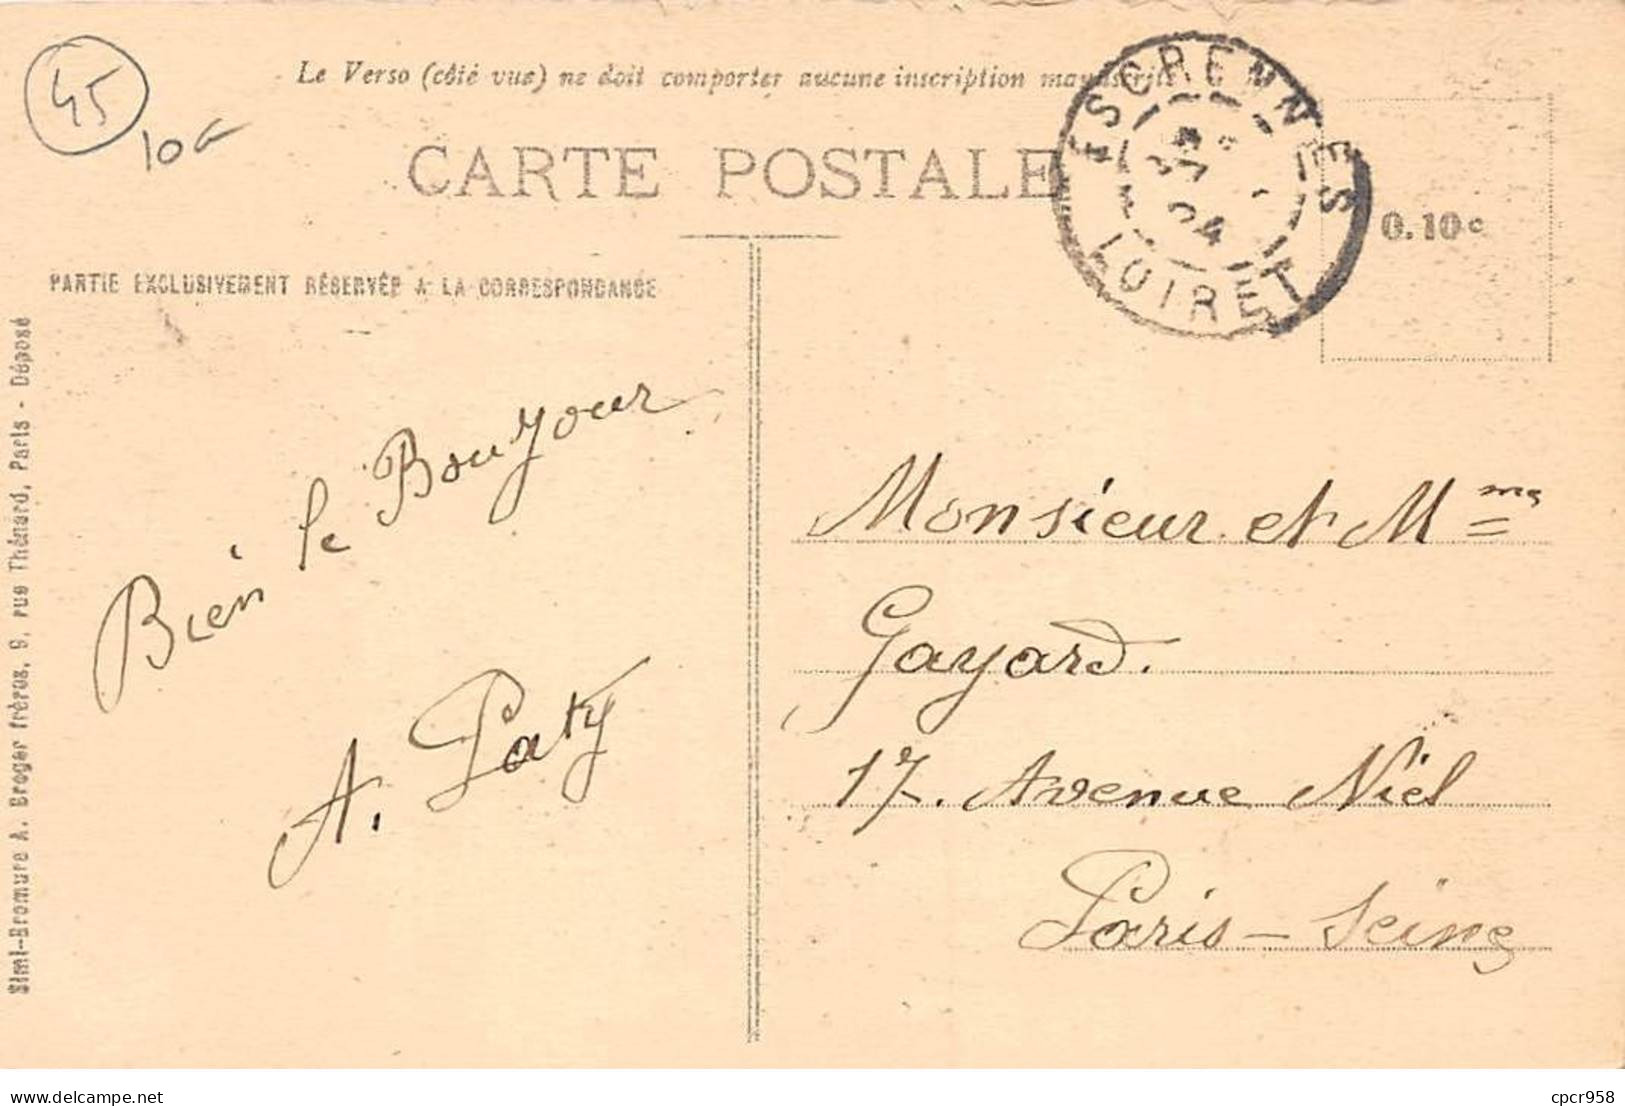 45
10
Le Verso (côté vue) ne doit comporter aucune inscription manuscrite
CARTE POSTALE
ESCRENNES
24
LOIRET
0.10c
PARTIE EXCLUSIVEMENT RÉSERVÉE A LA CORRESPONDANCE
Simi-Bromure A. Breger frères, 9, rue Thénard, Paris - Déposé
Bien le Bonjour
A. Paty
Monsieur et Mme
Gayard.
17. Avenue Niel
Paris - Seine
delcampe.net
cpcr958